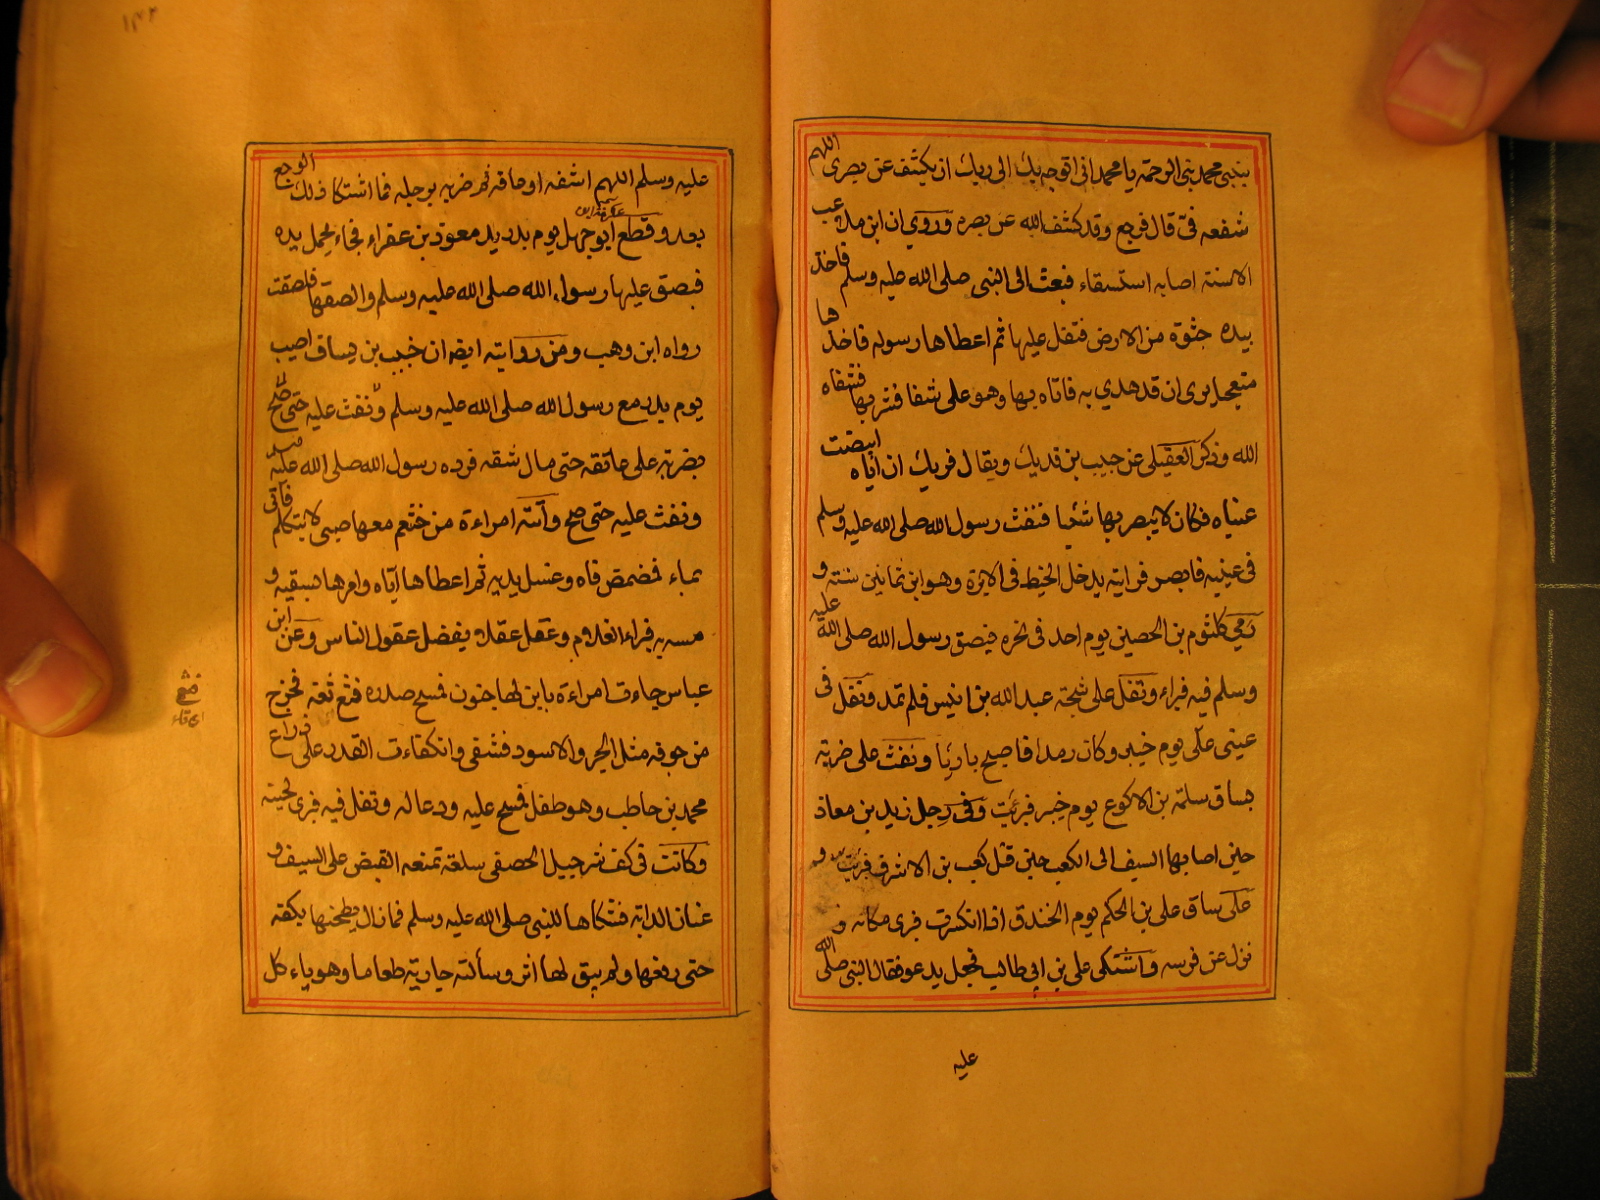 بنبي محمد نبي الرحمة يا محمد اني اتوجه بك الى ربك ان يكشف عن بصري اللهم
شفعه في قال فرجع وقد كشف الله عن بصره وروي ان ابن ملاعب
الاسنة اصابه استسقاء فبعث الى النبي صلى الله عليه وسلم فاخذ
بيده جثوة من الارض فتفل عليها ثم اعطاها رسوله فاخذها
متعجبا يرى ان قد هدي به فاتاه بها وهو على شفا فشربها فشفاه
الله وذكر العقيلي عن حبيب بن فديك ويقال فريك ان اباه ابيضت
عيناه فكان لا يبصر بهما شيئا فنفث رسول الله صلى الله عليه وسلم
في عينيه فابصر فرايته يدخل الخيط في الابرة وهو ابن ثمانين سنة و
رمي كلثوم بن الحصين يوم احد في نحره فبصق رسول الله صلى الله عليه
وسلم فيه فبراء وتفل على شجة عبد الله بن انيس فلم تمد وتفل في
عيني علي يوم خيبر وكان رمدا فاصبح باريا ونفث على ضربة
بساق سلمة بن الاكوع يوم خيبر فبرئت وفي رجل زيد بن معاذ
حين اصابها السيف الى الكعب حين قتل كعب بن الاشرف فبرئت و
على ساق علي بن الحكم يوم الخندق اذا انكسرت فبرى مكانه و
نزل عن فرسه واشتكى علي بن ابي طالب فجعل يدعو فقال النبي صلى الله
عليه
عليه وسلم اللهم اشفه او عافه ثم ضربه برجله فما اشتكا ذلك الوجع
بعد وقطع ابو جهل يوم بدر يد معوذ بن عفراء فجاء يحمل يده
فبصق عليها رسول الله صلى الله عليه وسلم والصقها فلصقت
رواه ابن وهب ومن روايته ايضا ان خبيب بن يساف اصيب
يوم بدر مع رسول الله صلى الله عليه وسلم ونفث عليه حتى صح
بضربة على عاتقه حتى مال شقه فرده رسول الله صلى الله عليه
ونفث عليه حتى صح وأتته امراءة من خثعم معها صبي لا يتكلم فأتي
بماء فمضمض فاه وغسل يديه ثم اعطاها اياه وامرها بسقيه و
مسه به فبراء الغلام وعقل عقلا يفضل عقول الناس وعن ابن
عباس جاءت امراءة بابن لها جنون فمسح صدره فثع ثعة فخرج
من جوفه مثل الجرو الاسود فشفي وانكفاءت القدر على ذراع
محمد بن حاطب وهو طفل فمسح عليه ودعا له وتفل فيه فبرى لحينه
وكانت في كف شرحبيل الجعفي سلعة تمنعه القبض على السيف و
عنان الدابة فشكاها للنبي صلى الله عليه وسلم فما زال يطحنها بكفه
حتى رفعها ولم يبق لها اثر وسألته جارية طعاما وهو ياءكل
فثع
اي قاء